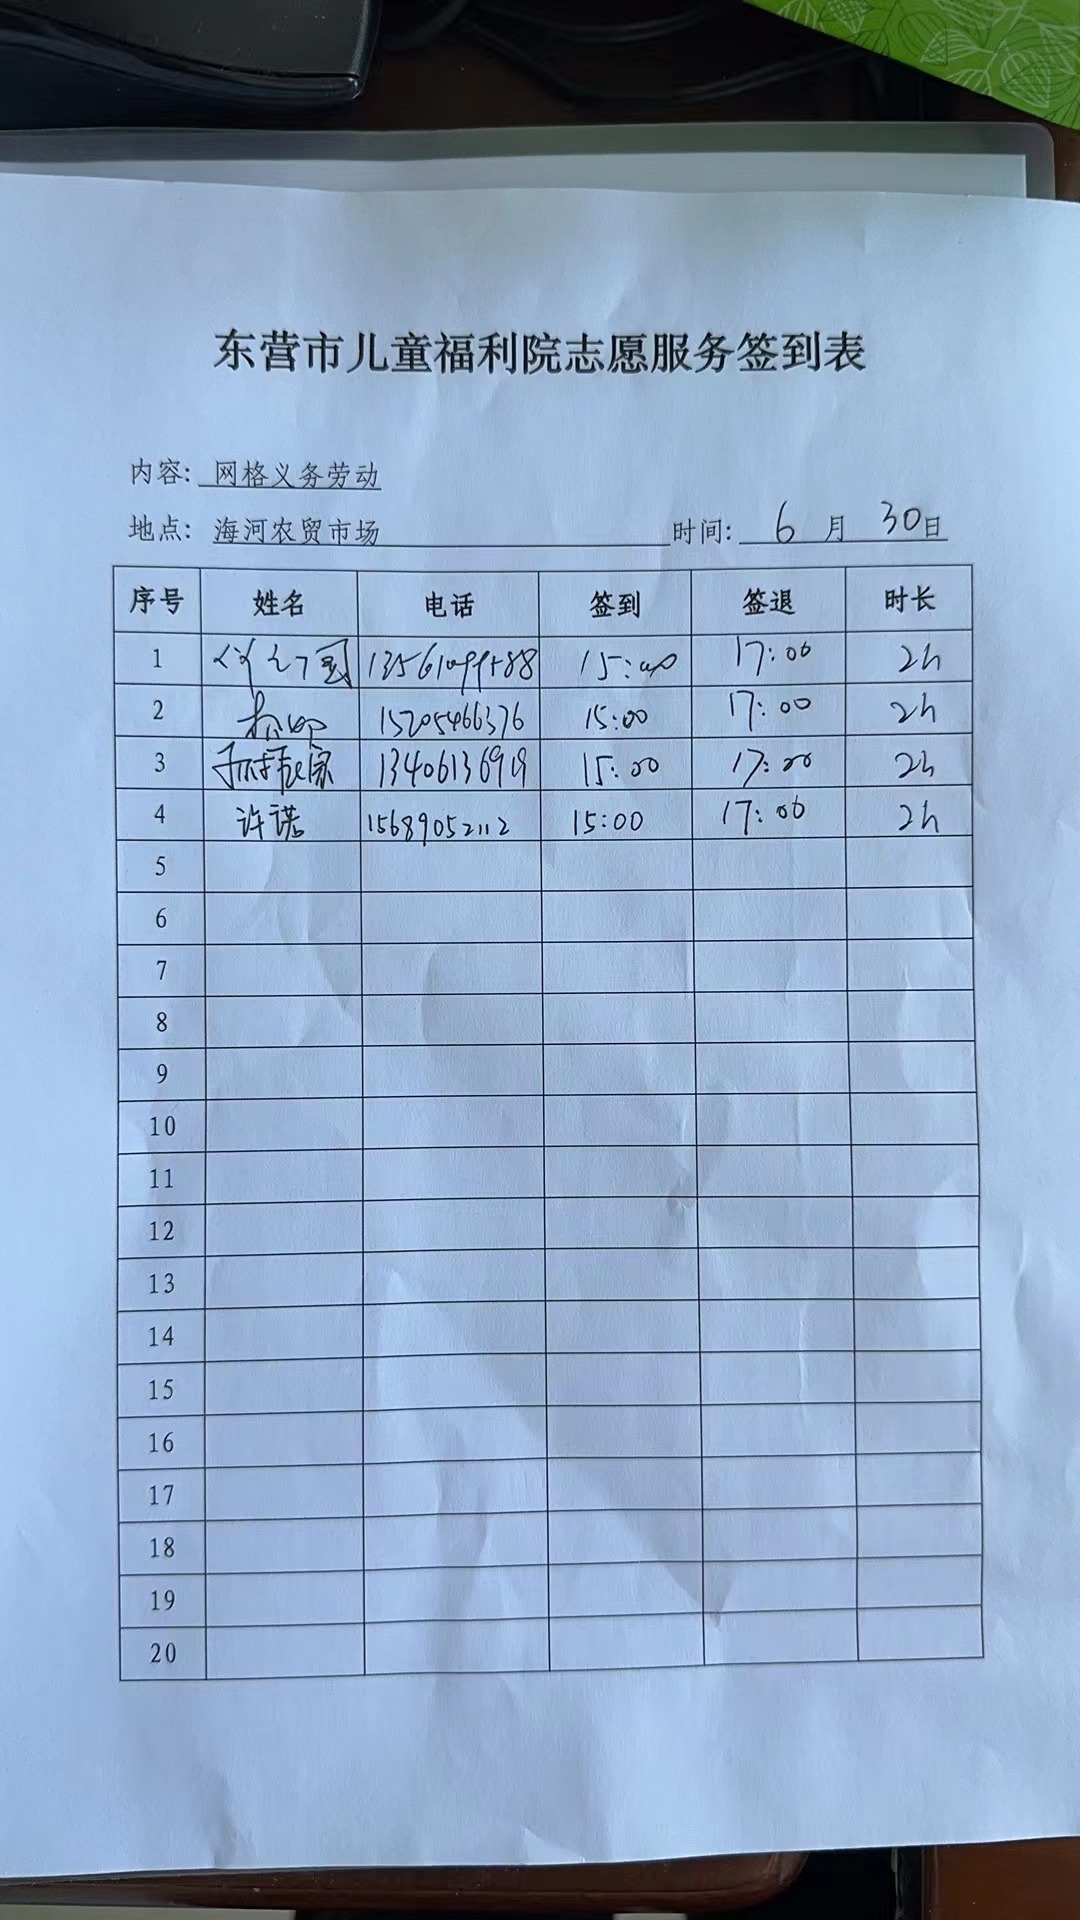 东营市儿童福利院志愿服务签到表
内容: 网格义务劳动
地点: 海河农贸市场 时间: 6 月 30日
序号 姓名 电话 签到 签退 时长
1 15:00 17:00 2h
2 15205466376 15:00 17:00 2h
3 13406136919 15:00 17:00 2h
4 许诺 15689052112 15:00 17:00 2h
5
6
7
8
9
10
11
12
13
14
15
16
17
18
19
20